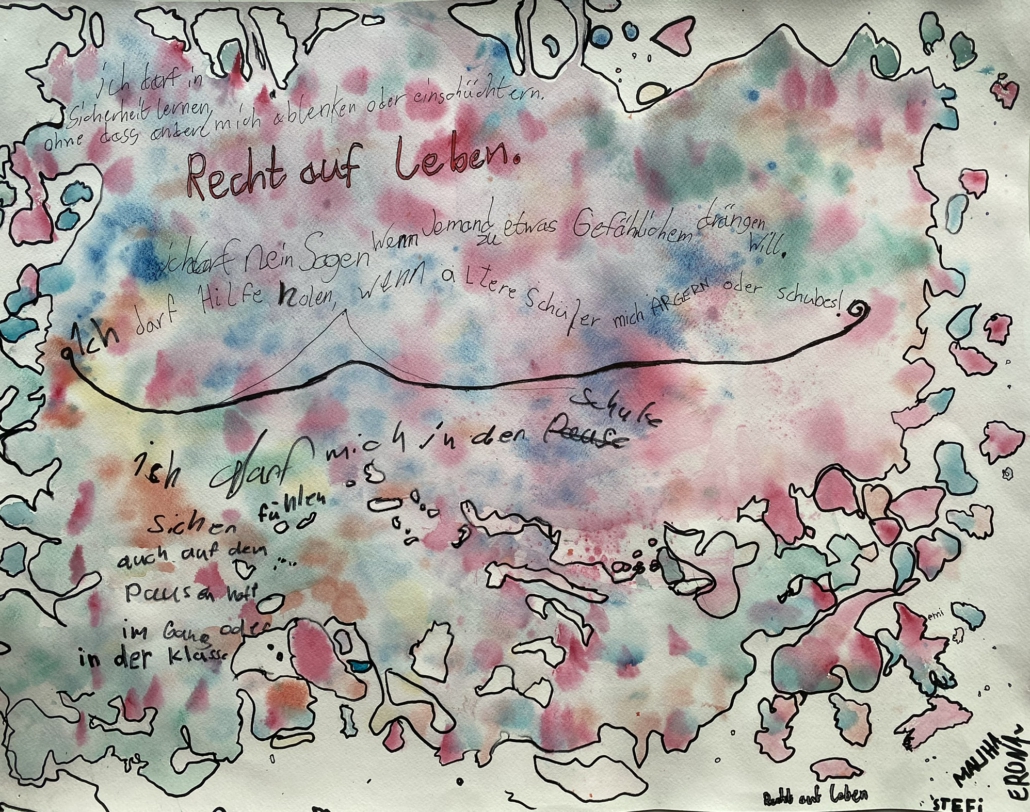 ich darf in
Sicherheit lernen,
ohne dass andere mich ablenken oder einschüchtern.
Recht auf Leben.
ich darf Nein Sagen Wenn Jemand zu etwas Gefählichem drängen will.
Ich darf Hilfe holen, wenn ältere Schüler mich ÄRGERN oder schubes!
Ich darf mich in den Schule
fühlen
auch auf dem
Pausen hoff
im Gang oder
in der Klasse
emi
MALIHA
ERONA
STEFi
Recht auf Leben